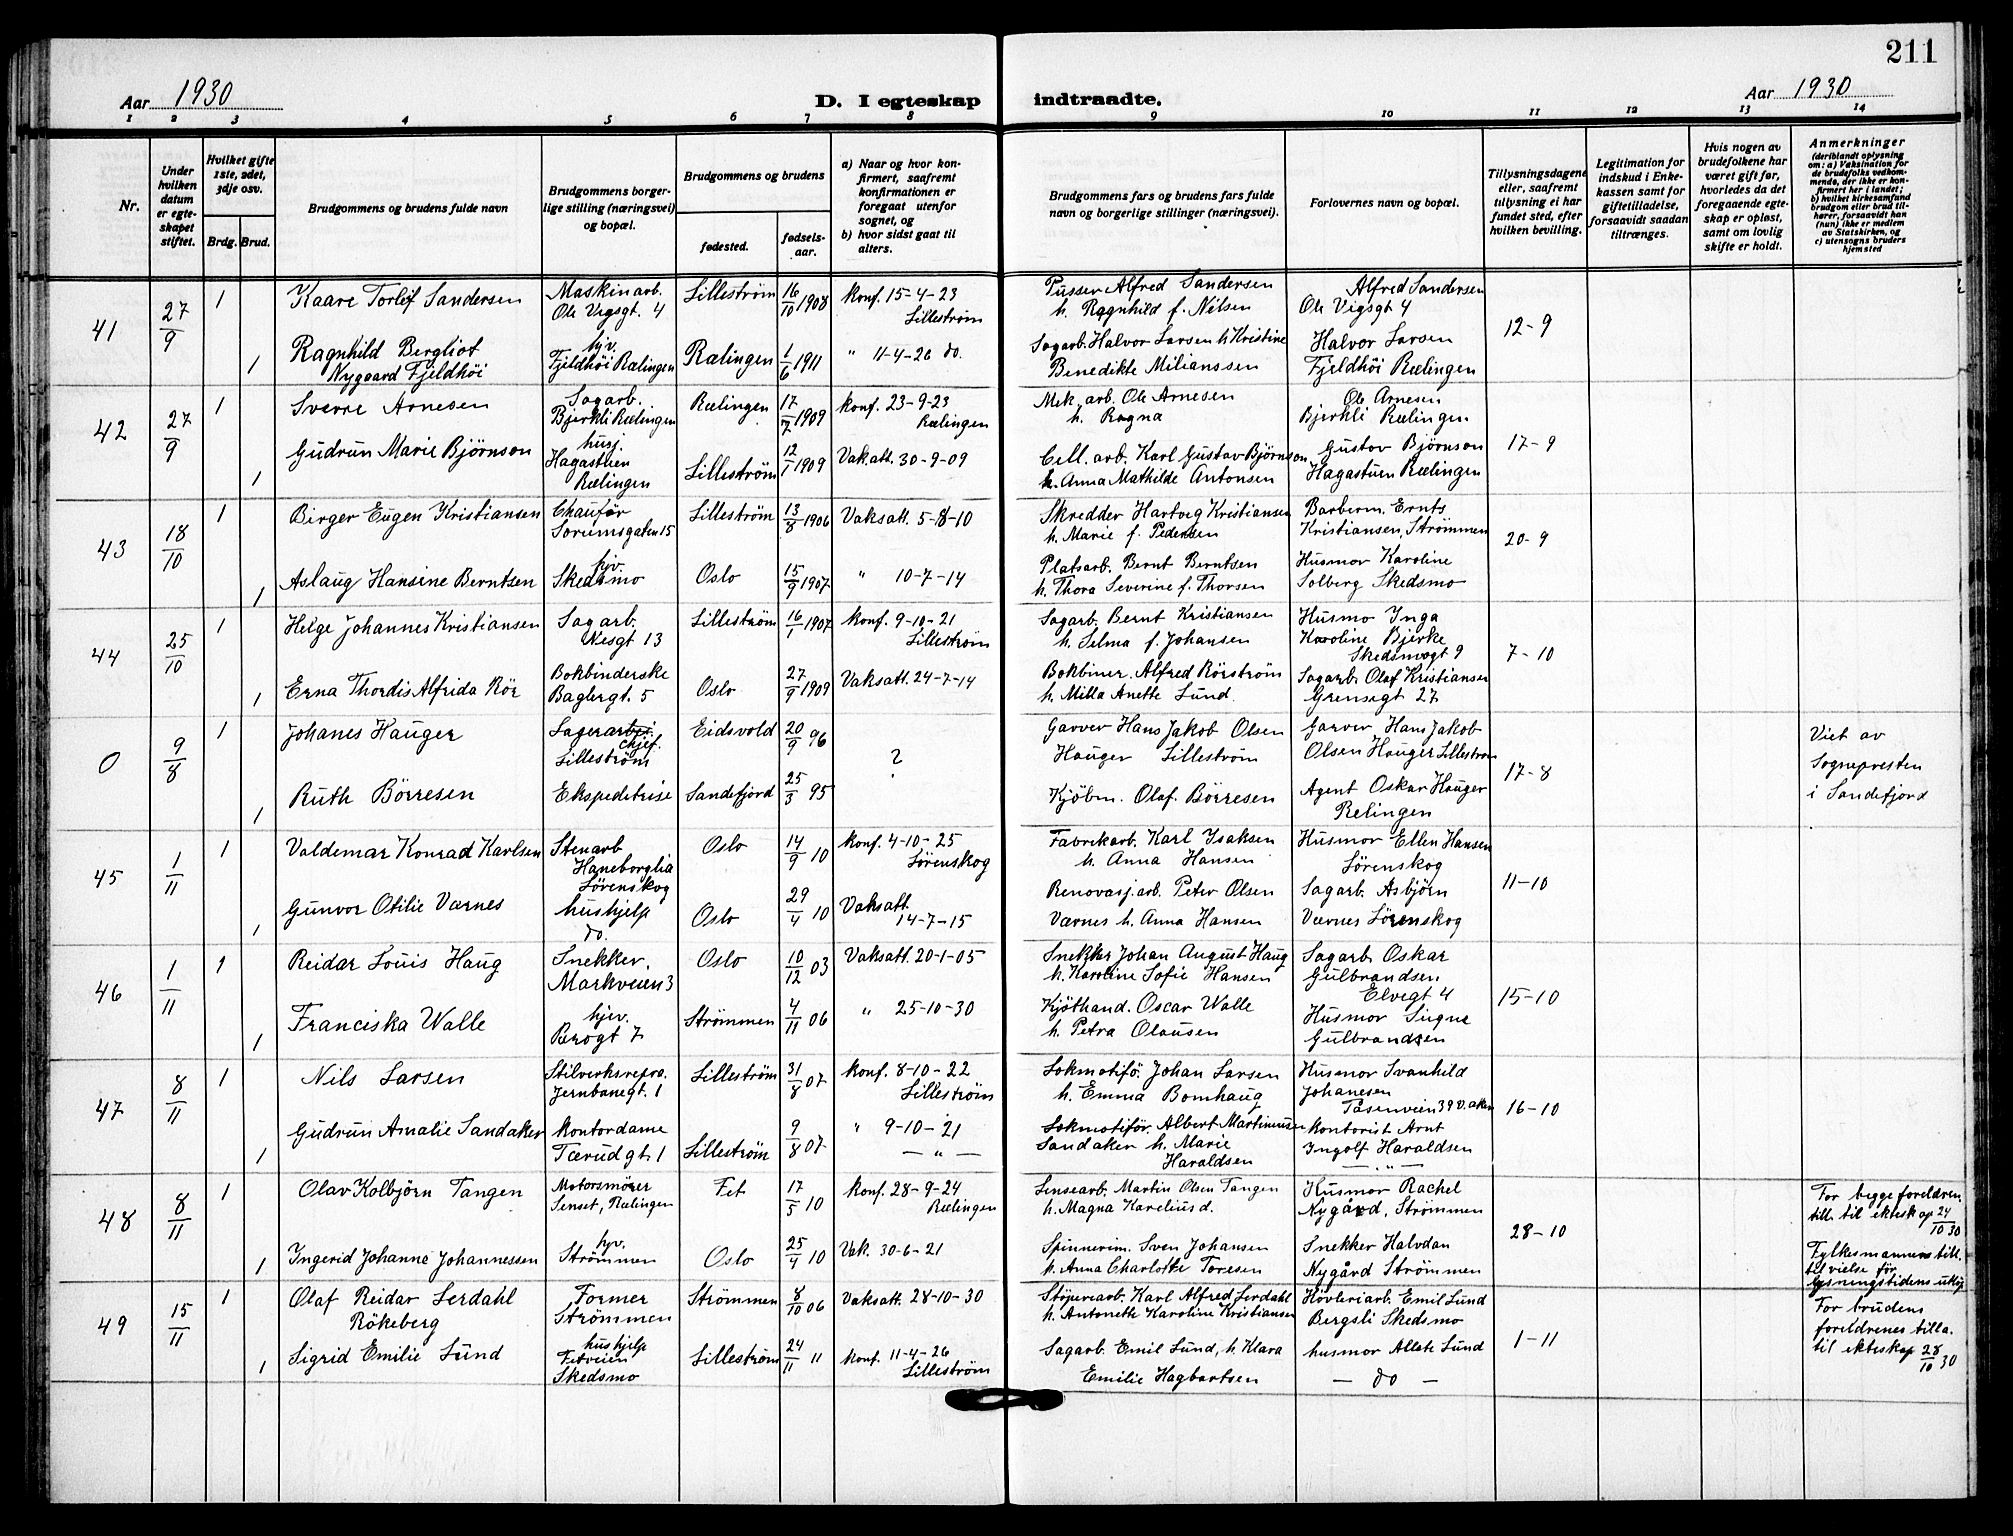 211
Aar 1930
D. I egteskap
indtraadte.
Aar 1930
1 2 3 4 5 6 7 8 9 10 11 12 13 14
Nr.
Under hvilken datum er egteskapet stiftet.
Hvilket gifte 1ste, 2det, 3dje osv.
Brdg. Brud.
Brudgommens og brudens fulde navn
Brudgommens borgerlige stilling (næringsvei) og bopæl.
Brudgommens og brudens
fødested.
fødselsaar.
a) Naar og hvor konfirmert, saafremt konfirmationen er foregaat utenfor sognet, og
b) hvor sidst gaat til alters.
Brudgommens fars og brudens fars fulde navn og borgerlige stillinger (næringsvei).
Forlovernes navn og bopæl.
Tillysningsdagene eller, saafremt tillysning ei har fundet sted, efter hvilken bevilling.
Legitimation for indskud i Enkekassen samt for giftetilladelse, forsaavidt saadan tiltrænges.
Hvis nogen av brudefolkene har været gift før, hvorledes da det foregaaende egteskap er opløst, samt om lovlig skifte er holdt.
Anmerkninger
(deriblandt oplysning om: a) Vaksination for de brudefolks vedkommende, der ikke er konfirmert her i landet;
b) hvilket kirkesamfund brudgom eller brud tilhører, forsaavidt han (hun) ikke er medlem av Statskirken, og
c) utensogns bruders hjemsted
41 27/9 1 Kaare Torleif Sandersen Maskinarb. Lilleström 16/10 1908 Konf. 15-4-23 Pusser Alfred Sandersen Alfred Sandersen
Ole Vigsgt. 4 Lilleström h. Ragnhild f. Nilsen Ole Vigsgt 4 12-9
1 Ragnhild Bergliot hjv. Rælingen 1/6 1911 " 11-4-26 do. Sagarb. Halvor Larsen h Kristine Halvor Larsen
Nygaard Fjeldhöi Fjeldhöi Rælingen Benedikte Milianssen Fjeldhöi Rælingen
42 27/9 1 Sverre Arnesen Sagarb. Rælingen 17/7 1909 Konf. 23-9-23 Mek. arb. Ole Arnesen Ole Arnesen
Bjerkli Rælingen Rælingen h. Ragna Bjerkli Rælingen 17-9
1 Gudrun Marie Björnson husj. Lilleström 12/1 1909 Vak.att. 30-9-09 Cell. arb. Karl Gustav Björnson Gustav Björnson
Hagastuen Rælingen h. Anna Mathilde Antonsen Hagastuen Rælingen
43 18/10 1 Birger Eugen Kristiansen Chauför Lilleström 13/8 1906 Vaksatt. 5-8-10 Skredder Hartvig Kristiansen Barberm. Ernts
Sorumsgaten 15 h. Marie f. Pedersen Kristiansen, Strömmen 20-9
1 Aslaug Hansine Berntsen hjv. Skedsmo Oslo 15/9 1907 " 10-7-14 Platsarb. Bernt Berntsen Husmor Karoline
h. Thora Severine f. Thorsen Solberg Skedsmo
44 25/10 1 Helge Johannes Kristiansen Sagarb. Lilleström 16/1 1907 Konf. 9-10-21 Sagarb. Bernt Kristiansen Husmo Inga
Nesgt 13 Lilleström h. Selma f. Johansen Karoline Bjerke
Skedsmogt 9 7-10
1 Erna Thordis Alfrida Rör Bokbinderske Oslo 27/9 1909 Vaksatt. 24-7-14 Bokbiner. Alfred Rörström Sagarb. Olaf Kristiansen
Baglergt. 5 h. Milla Anette Lund. Grensegt 27
0 9/8 1 Johanes Hauger Lagerarbei. chjef. Eidsvold 20/9 96 ? Garver Hans Jakob Olsen Garver Hans Jakob
Lilleström Hauger Lilleström Olsen Hauger Lilleström 17-8 Viet av
1 Ruth Börresen Ekspeditrise Sandefjord 25/3 95 Kjöbm. Olaf. Börresen Agent Oskar Hauger Sognepresten
Relingen i Sandefjord
45 1/11 1 Valdemar Konrad Karlsen Stenarb Oslo 14/9 10 Konf. 4-10-25 Fabrikarb. Karl Isaksen Husmor Ellen Hansen
Haneborglia Lörenskog Lörenskog h. Anna Hansen Lörenskog 11-10
1 Gunvor Otilie Værnes hushjelp do. Oslo 29/4 10 Vaksatt. 14-7-15 Renovasj.arb. Peter Olsen Sagarb. Asbjörn
Værnes h. Anna Hansen Værnes Lörenskog
46 1/11 1 Reidar Louis Haug Snekker. Oslo 10/12 03 Vaksatt. 20-1-05 Snekker Johan August Haug Sagarb. Oskar
Markveien 3 h. Karoline Sofie Hansen Gulbrandsen
Elvegt 4 15-10
1 Franciska Walle hjv. Strömmen 4/11 06 " 25-10-30 Kjöthand. Oscar Walle Husmor Signe
h. Petra Olausen Gulbrandsen
47 8/11 1 Nils Larsen Stilverksrepra. Lilleström 31/8 07 Konf. 8-10-22 Lokmotifö. Johan Larsen Husmor Svanhild
Jernbanegt. 1 Lilleström h. Emma Bomhaug Johanesen
Tåsenveien 39 V. aker 16-10
1 Gudrun Amalie Sandaker Kontordame Lilleström 9/8 07 " 9-10-21 Lokmotiför. Albert Martiniusen Kontorist Arnt
Tærudgt. 1 — " — Sandaker h. Marie Haraldsen Ingolf Haraldsen
— " —
48 8/11 1 Olav Kolbjörn Tangen Motorsmörer Fet 17/5 10 Konf. 28-9-24 Lensearb. Martin Olsen Tangen Husmor Rachel For begge foreldren.
Senset, Rælingen Rælingen h. Magna Kareliusd. Nygård, Strömmen till. til ekteskap 24/10 30
28-10
1 Ingerid Johanne Johannessen hjv. Strömmen Oslo 25/4 10 Vak. 30-6-21 Spinnerim. Sven Johansen Snekker Halvdan Fylkesmannens till.
h. Anna Charlotte Toresen Nygård Strömmen til vielse för
lysningstidens utlöp
49 15/11 1 Olaf Reidar Lerdahl Former Strömmen 8/10 06 Vaksatt. 28-10-30 Stöperarb. Karl Alfred Lerdahl Hövleriarb. Emil Lund For brudens
Rökeberg Strömmen h. Antonette Karoline Kristiansen Bergsli Skedsmo foreldrenes tilla.
1 Sigrid Emilie Lund hushjelp Lilleström 24/11 11 Konf. 11-4-26 Sagarb. Emil Lund, h. Klara husmor Allete Lund 1-11 til ekteskap 28/10 30
Fetveien Skedsmo Lilleström Emilie Hagbartsen — do —